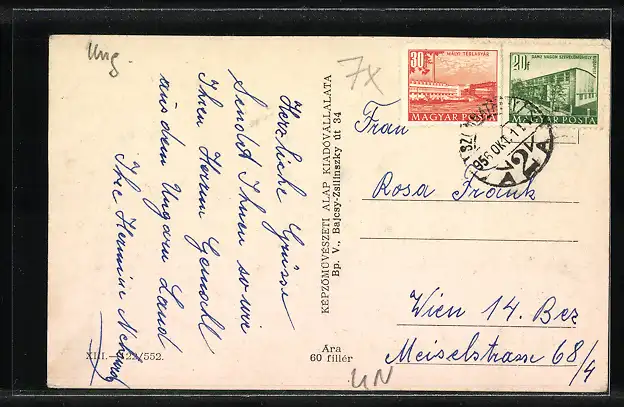 Ung.
7x
Herzliche Grüsse
Sendet Ihnen sowie
Ihren Herrn Gemahl
aus dem Ungarn Land
Ihre Hermine
KÉPZŐMŰVÉSZETI ALAP KIADÓVÁLLALATA
Bp. V., Bajcsy-Zsilinszky út 34
30f
MÁLYI TÉGLAGYÁR
MAGYAR POSTA
20f
GANZ VAGON SZERELŐMŰHELY
MAGYAR POSTA
956 OKT. 11
Frau
Rosa Frank
Wien 14. Bez
Meiselstrasse 68/4
XIII.
/552.
Ára
60 fillér
UN